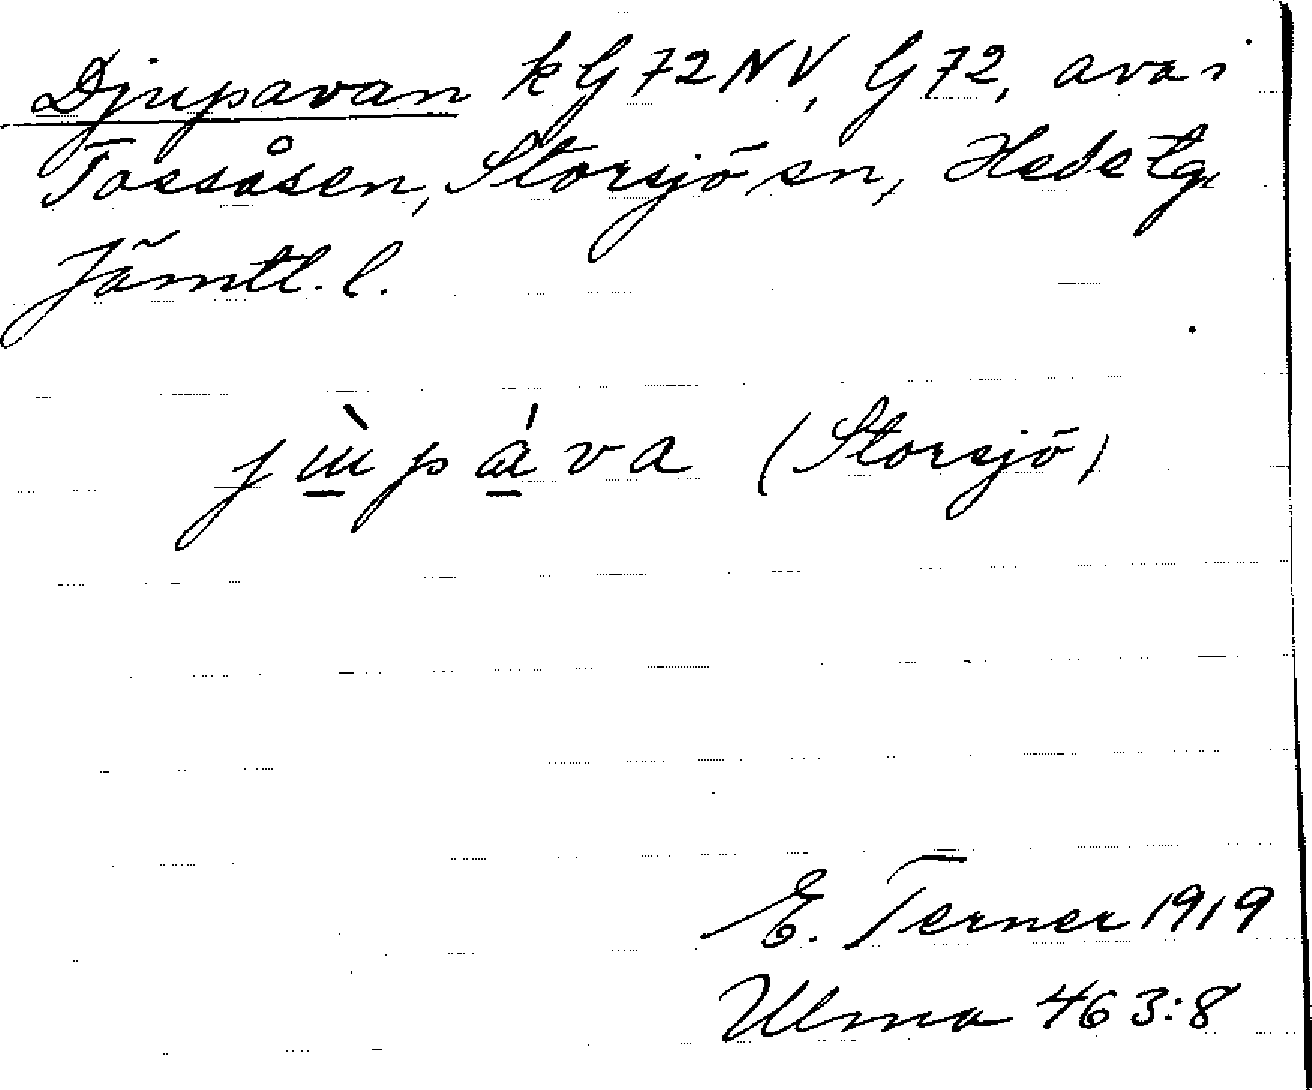 Djupavan kG72NV, G72, ava i
Tossåsen, Storsjö sn, Hede tg,
Jämtl. l.
jùpáva (Storsjö)
E. Terner 1919
Ulma 463:8